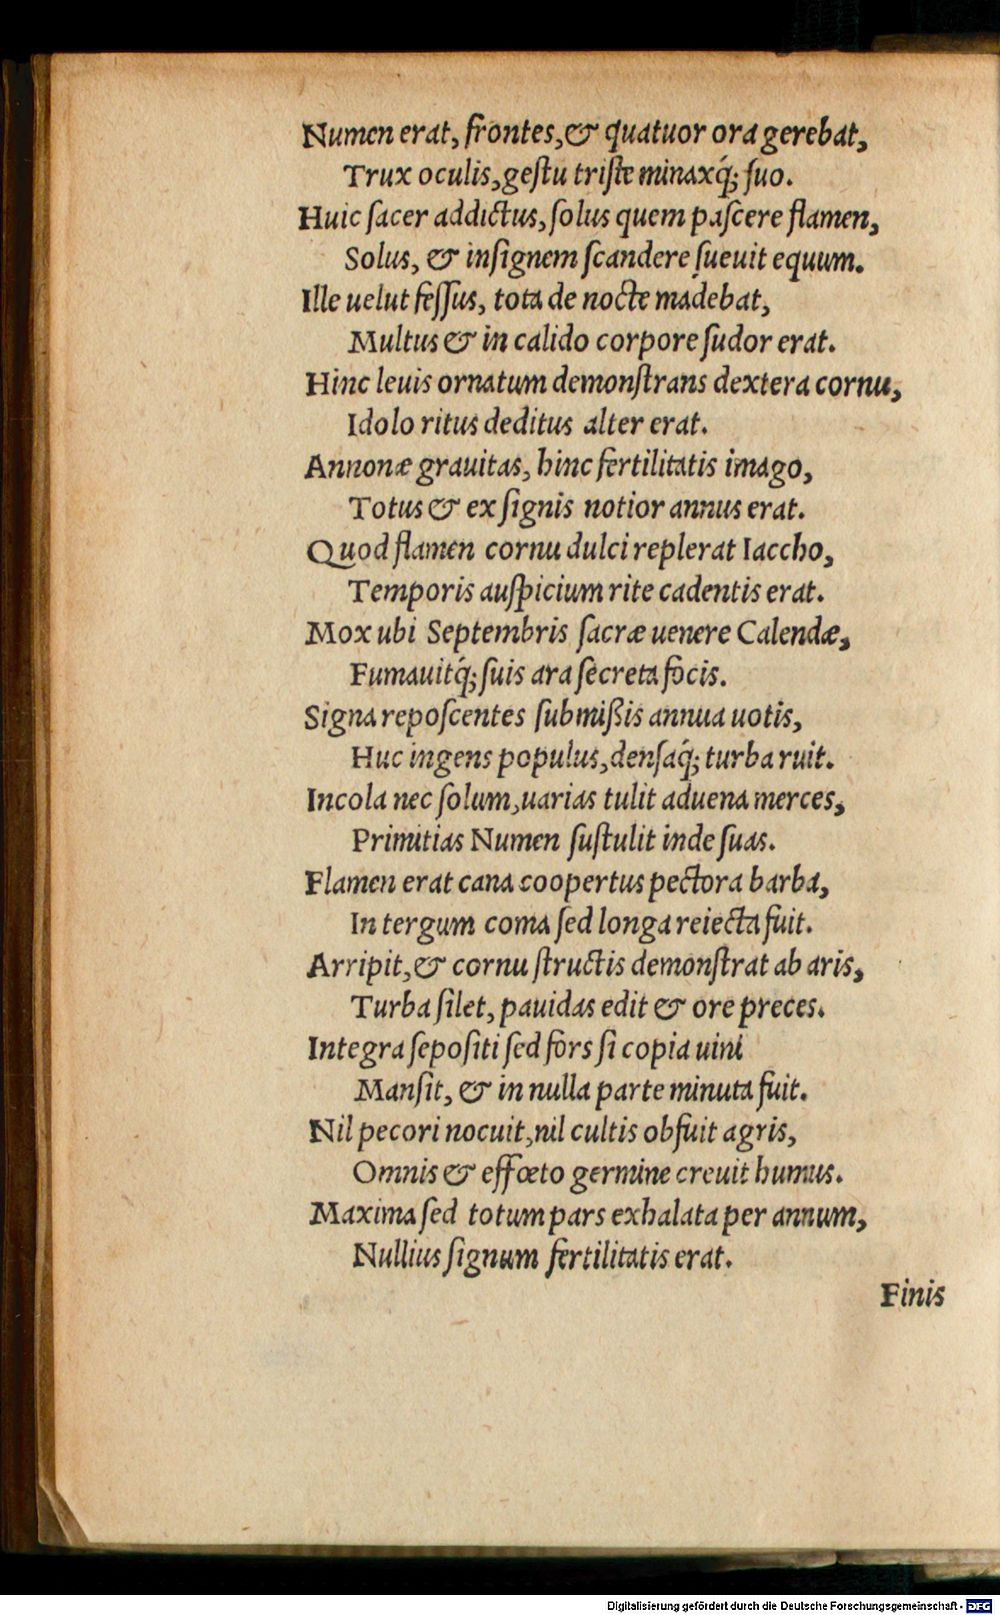 Numen erat, frontes,& quatuor ora gerebat,
Trux oculis,geſtu triſte minaxq́; ſuo.
Huic ſacer addictus, ſolus quem paſcere flamen,
Solus, & inſignem ſcandere ſueuit equum.
Ille uelut feſſus, tota de nocte madebat,
Multus & in calido corpore ſudor erat.
Hinc leuis ornatum demonſtrans dextera cornu,
Idolo ritus deditus alter erat.
Annonæ grauitas, hinc fertilitatis imago,
Totus & ex ſignis notior annus erat.
Quod flamen cornu dulci replerat Iaccho,
Temporis auſpicium rite cadentis erat.
Mox ubi Septembris ſacræ uenere Calendæ,
Fumauitq́; ſuis ara ſecreta focis.
Signa repoſcentes ſubmißis annua uotis,
Huc ingens populus, denſaq́; turba ruit.
Incola nec ſolum,uarias tulit aduena merces,
Primitias Numen ſuſtulit inde ſuas.
Flamen erat cana coopertus pectora barba,
In tergum coma ſed longa reiecta fuit.
Arripit,& cornu ſtructis demonſtrat ab aris,
Turba ſilet, pauidas edit & ore preces.
Integra ſepoſiti ſed fors ſi copia uini
Manſit, & in nulla parte minuta fuit.
Nil pecori nocuit,nil cultis obfuit agris,
Omnis & effœto germine creuit humus.
Maxima ſed totum pars exhalata per annum,
Nullius ſignum fertilitatis erat.
Finis
Digitalisierung gefördert durch die Deutsche Forschungsgemeinschaft - DFG